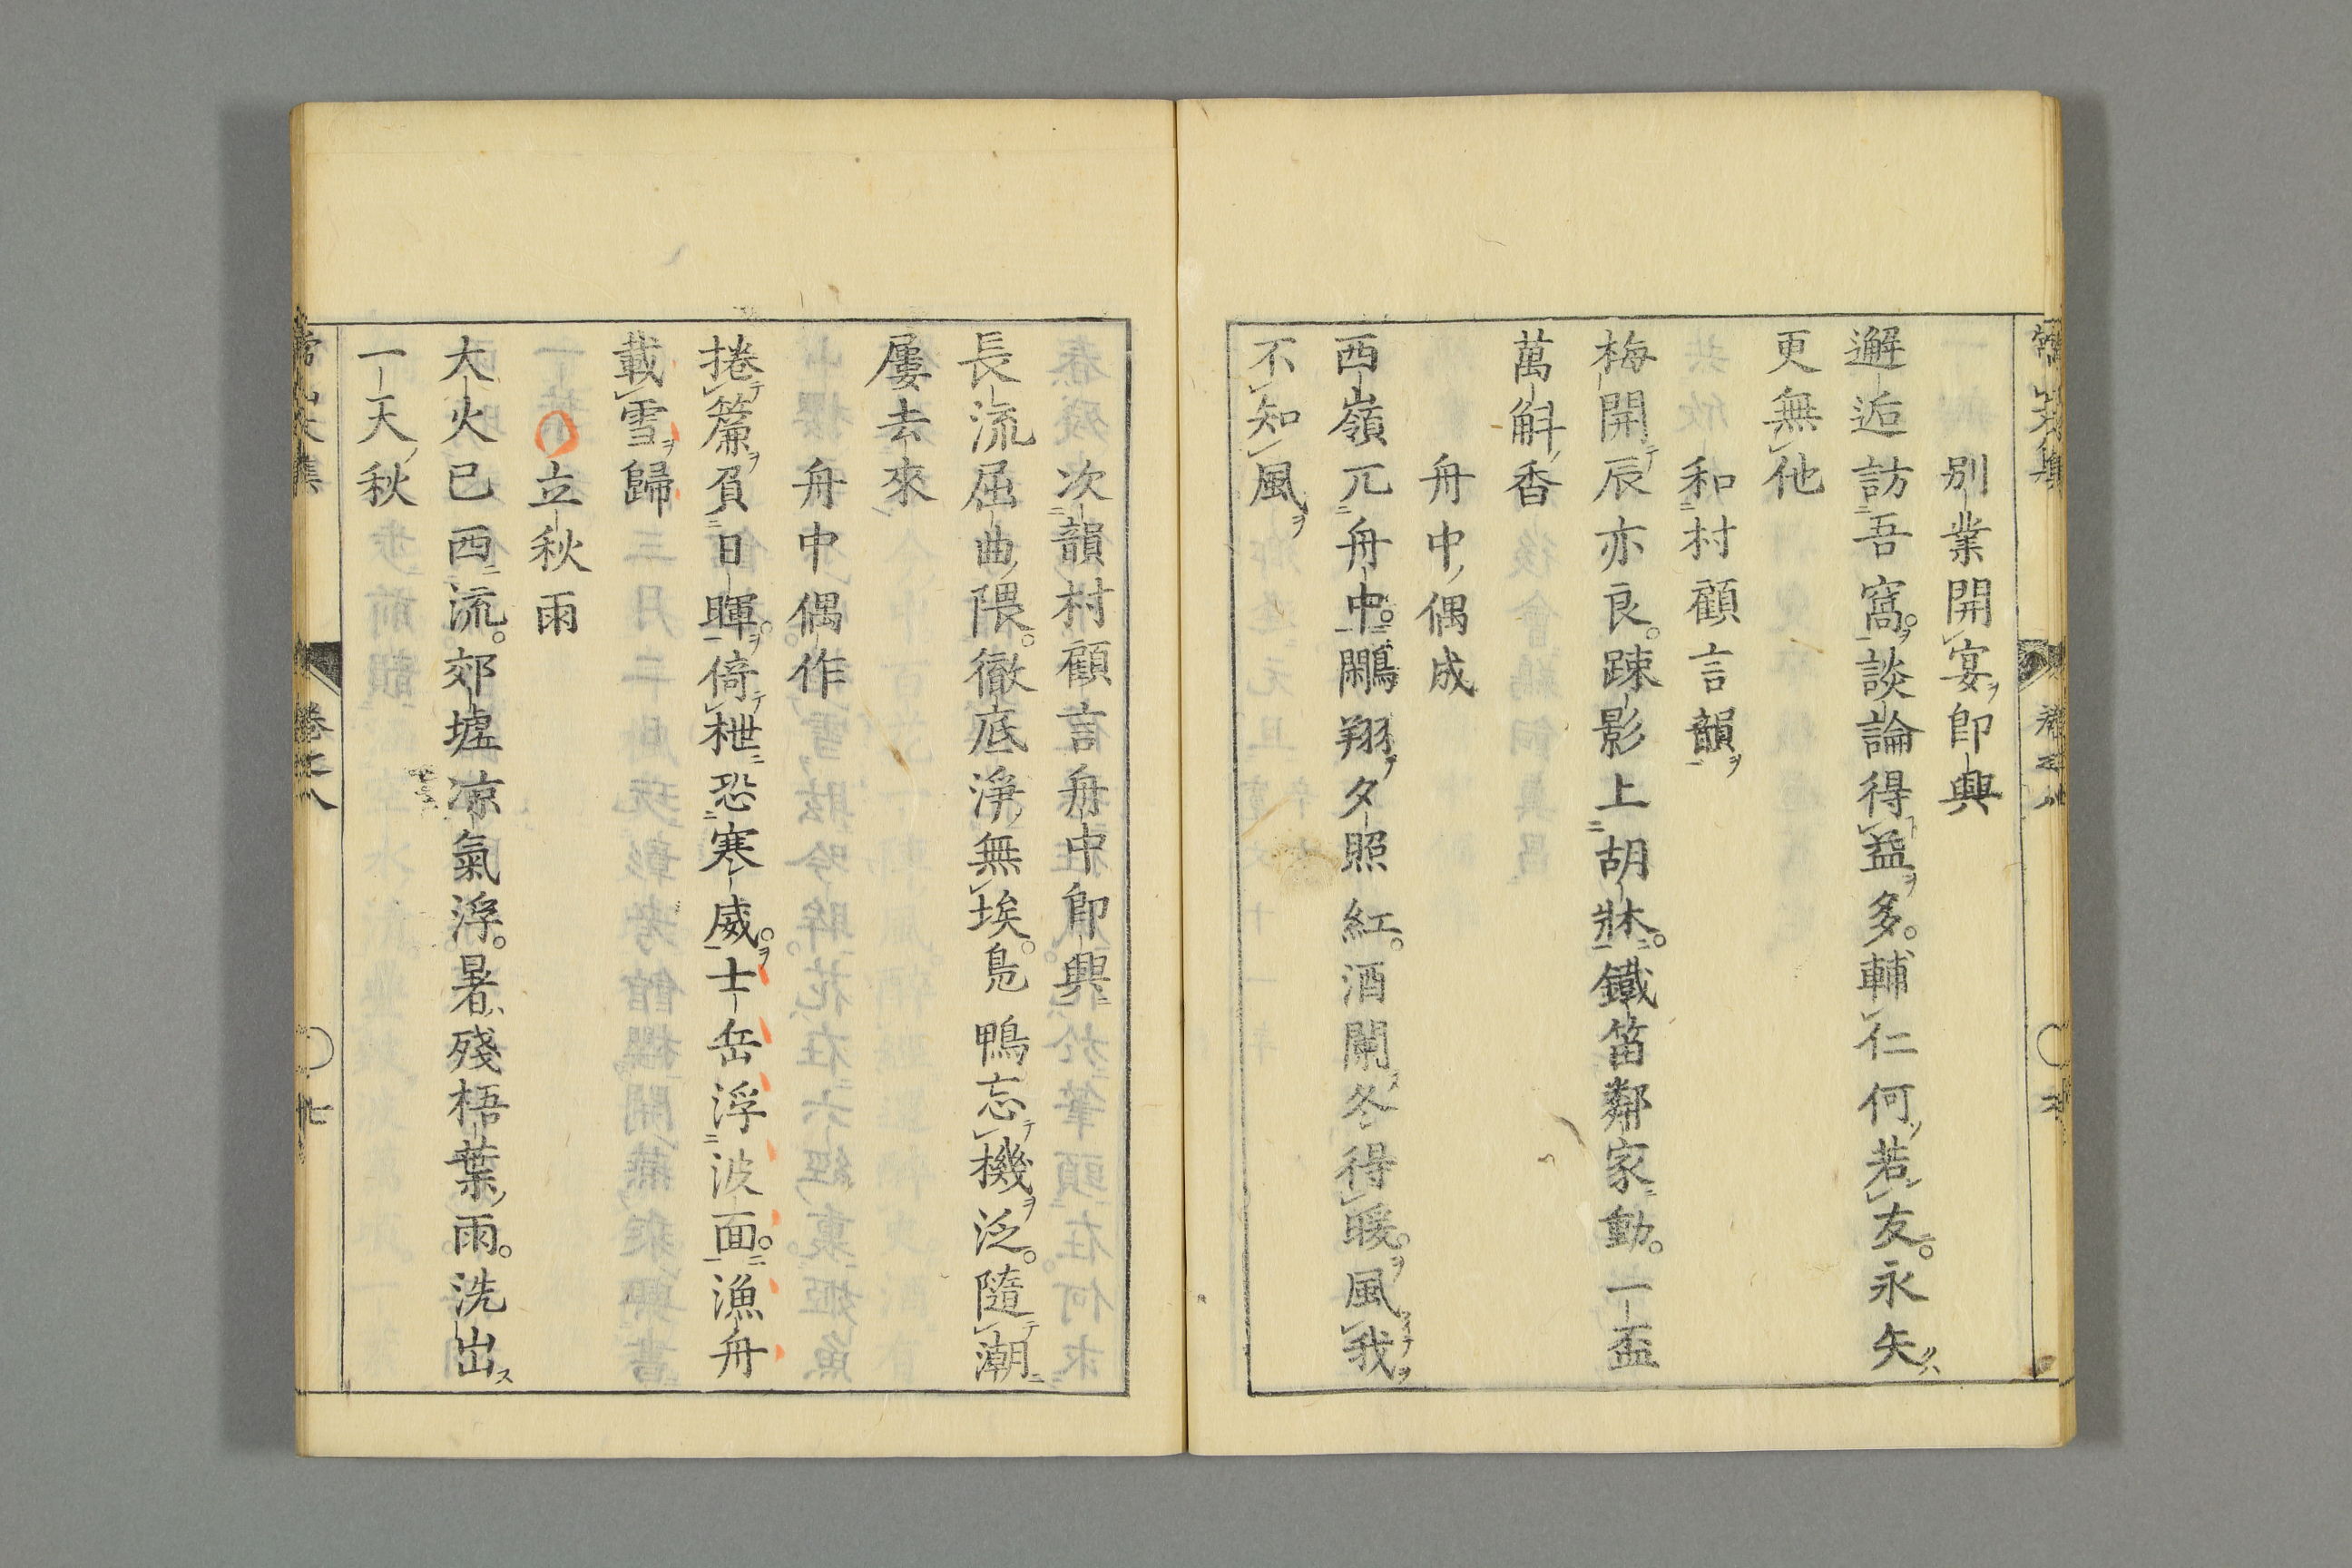 別業開宴即興
邂逅訪吾窩。談論得益多。輔仁何若友。永矢
更無他
和村顧言韻
梅開辰亦良。踈影上胡牀。鐵笛鄰家動。一盃
萬斛香
舟中偶成
西嶺兀舟中。鷴翔夕照紅。酒闌冬得暖。風我
不知風
次韻村顧言舟中即興
長流屈曲隈。徹底淨無埃。鳬鴨忘機泛。隨潮
屢去來
舟中偶作
捲簾負日暉。倚枻恐寒威。士岳浮波面。漁舟
載雪歸
立秋雨
大火已西流。郊墟凉氣浮。暑殘梧葉雨。洗出
一天秋